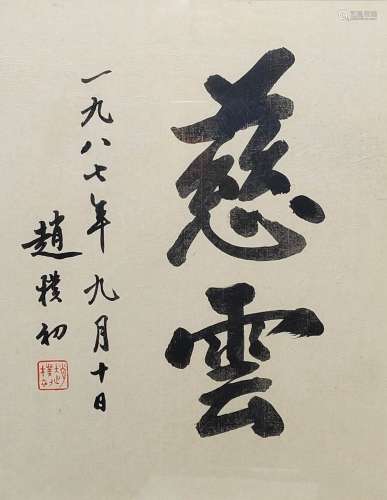 慈雲
一九八七年九月十日
趙樸初